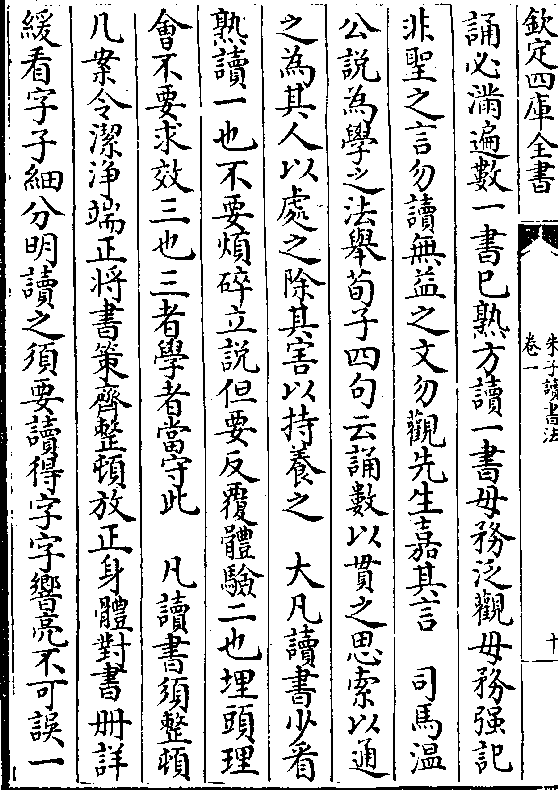 欽定四庫全書
朱子讀書法
卷一
十
誦必滿遍數一書已熟方讀一書毋務泛觀毋務强記
非聖之言勿讀無益之文勿觀先生嘉其言　司馬温
公説為學之法舉荀子四句云誦數以貫之思索以通
之為其人以處之除其害以持養之　大凡讀書少看
熟讀一也不要煩碎立説但要反覆體驗二也埋頭理
會不要求效三也三者學者當守此　凡讀書須整頓
几案令潔浄端正將書策齊整頓放正身體對書冊詳
緩看字子細分明讀之須要讀得字字響亮不可誤一